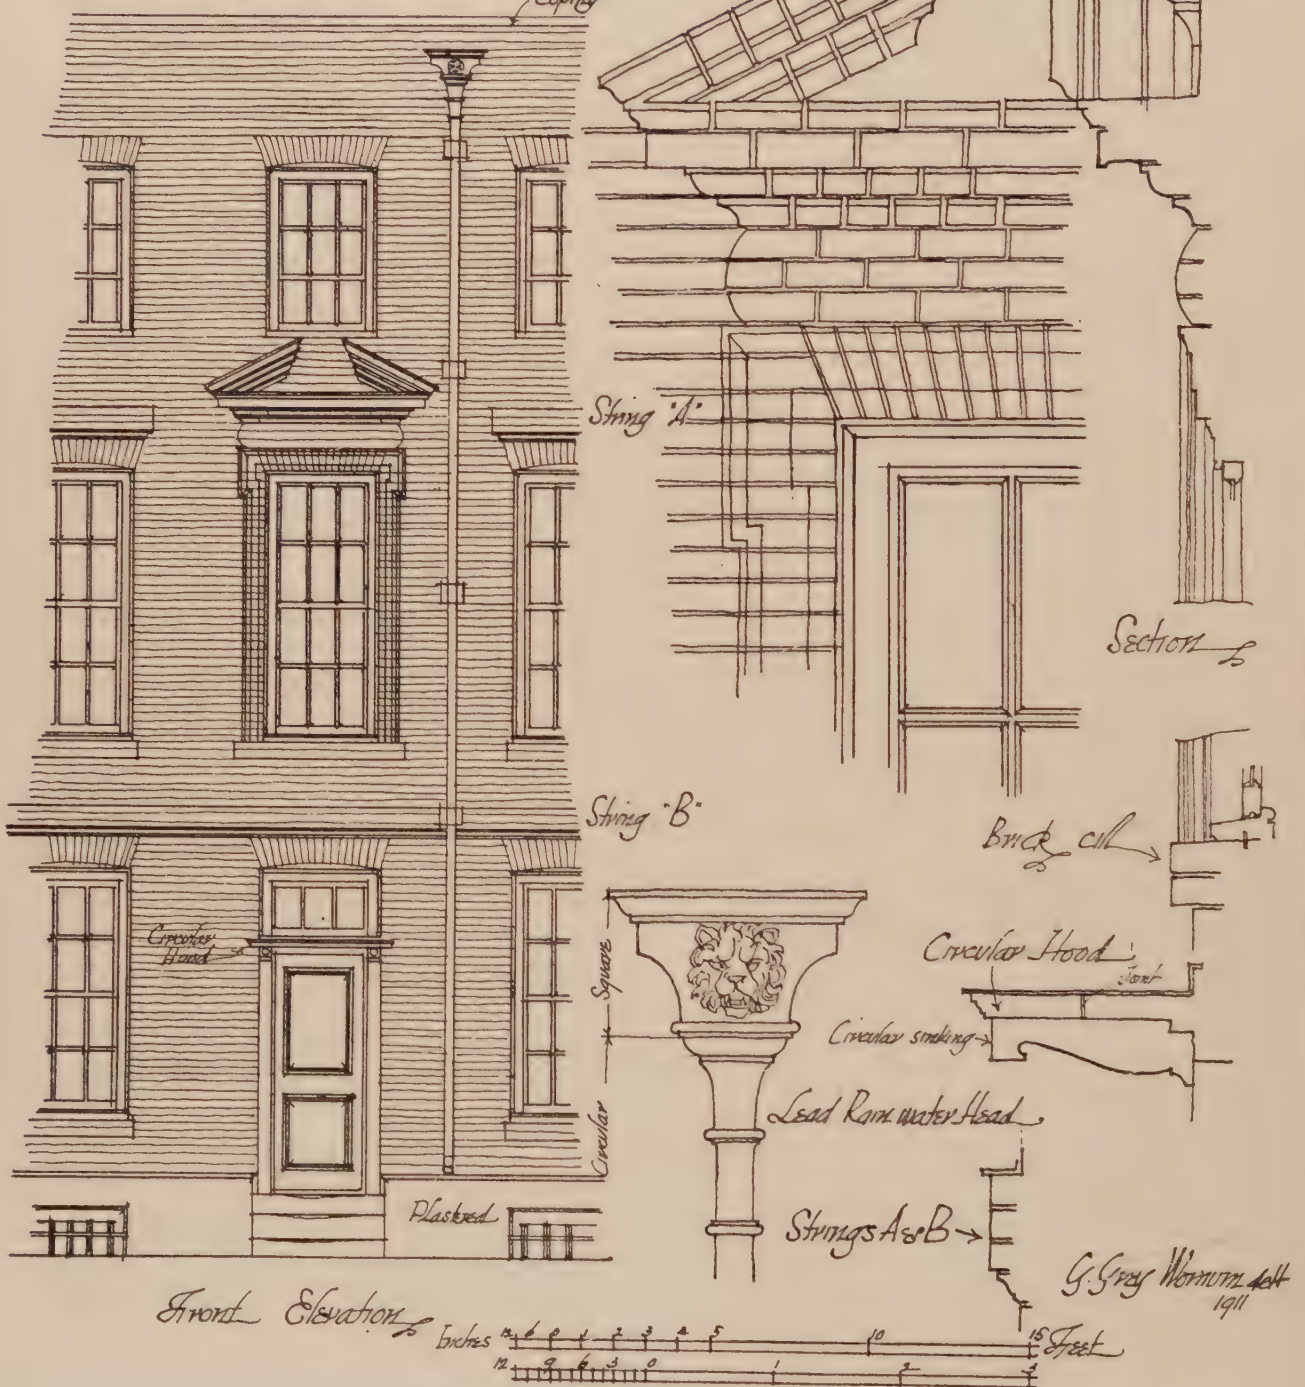 Coping
String "A"
Section
String "B"
Brick cill
Circular
Hood
Square
Circular Hood
Joint
Circular sinking
Circular
Lead Rain water Head
Plastered
Strings A & B
G. Grey Wornum delt
1911
Front Elevation
Inches 12 6 0 1 2 3 4 5 10 15 Feet
12 9 6 3 0 1 2 3